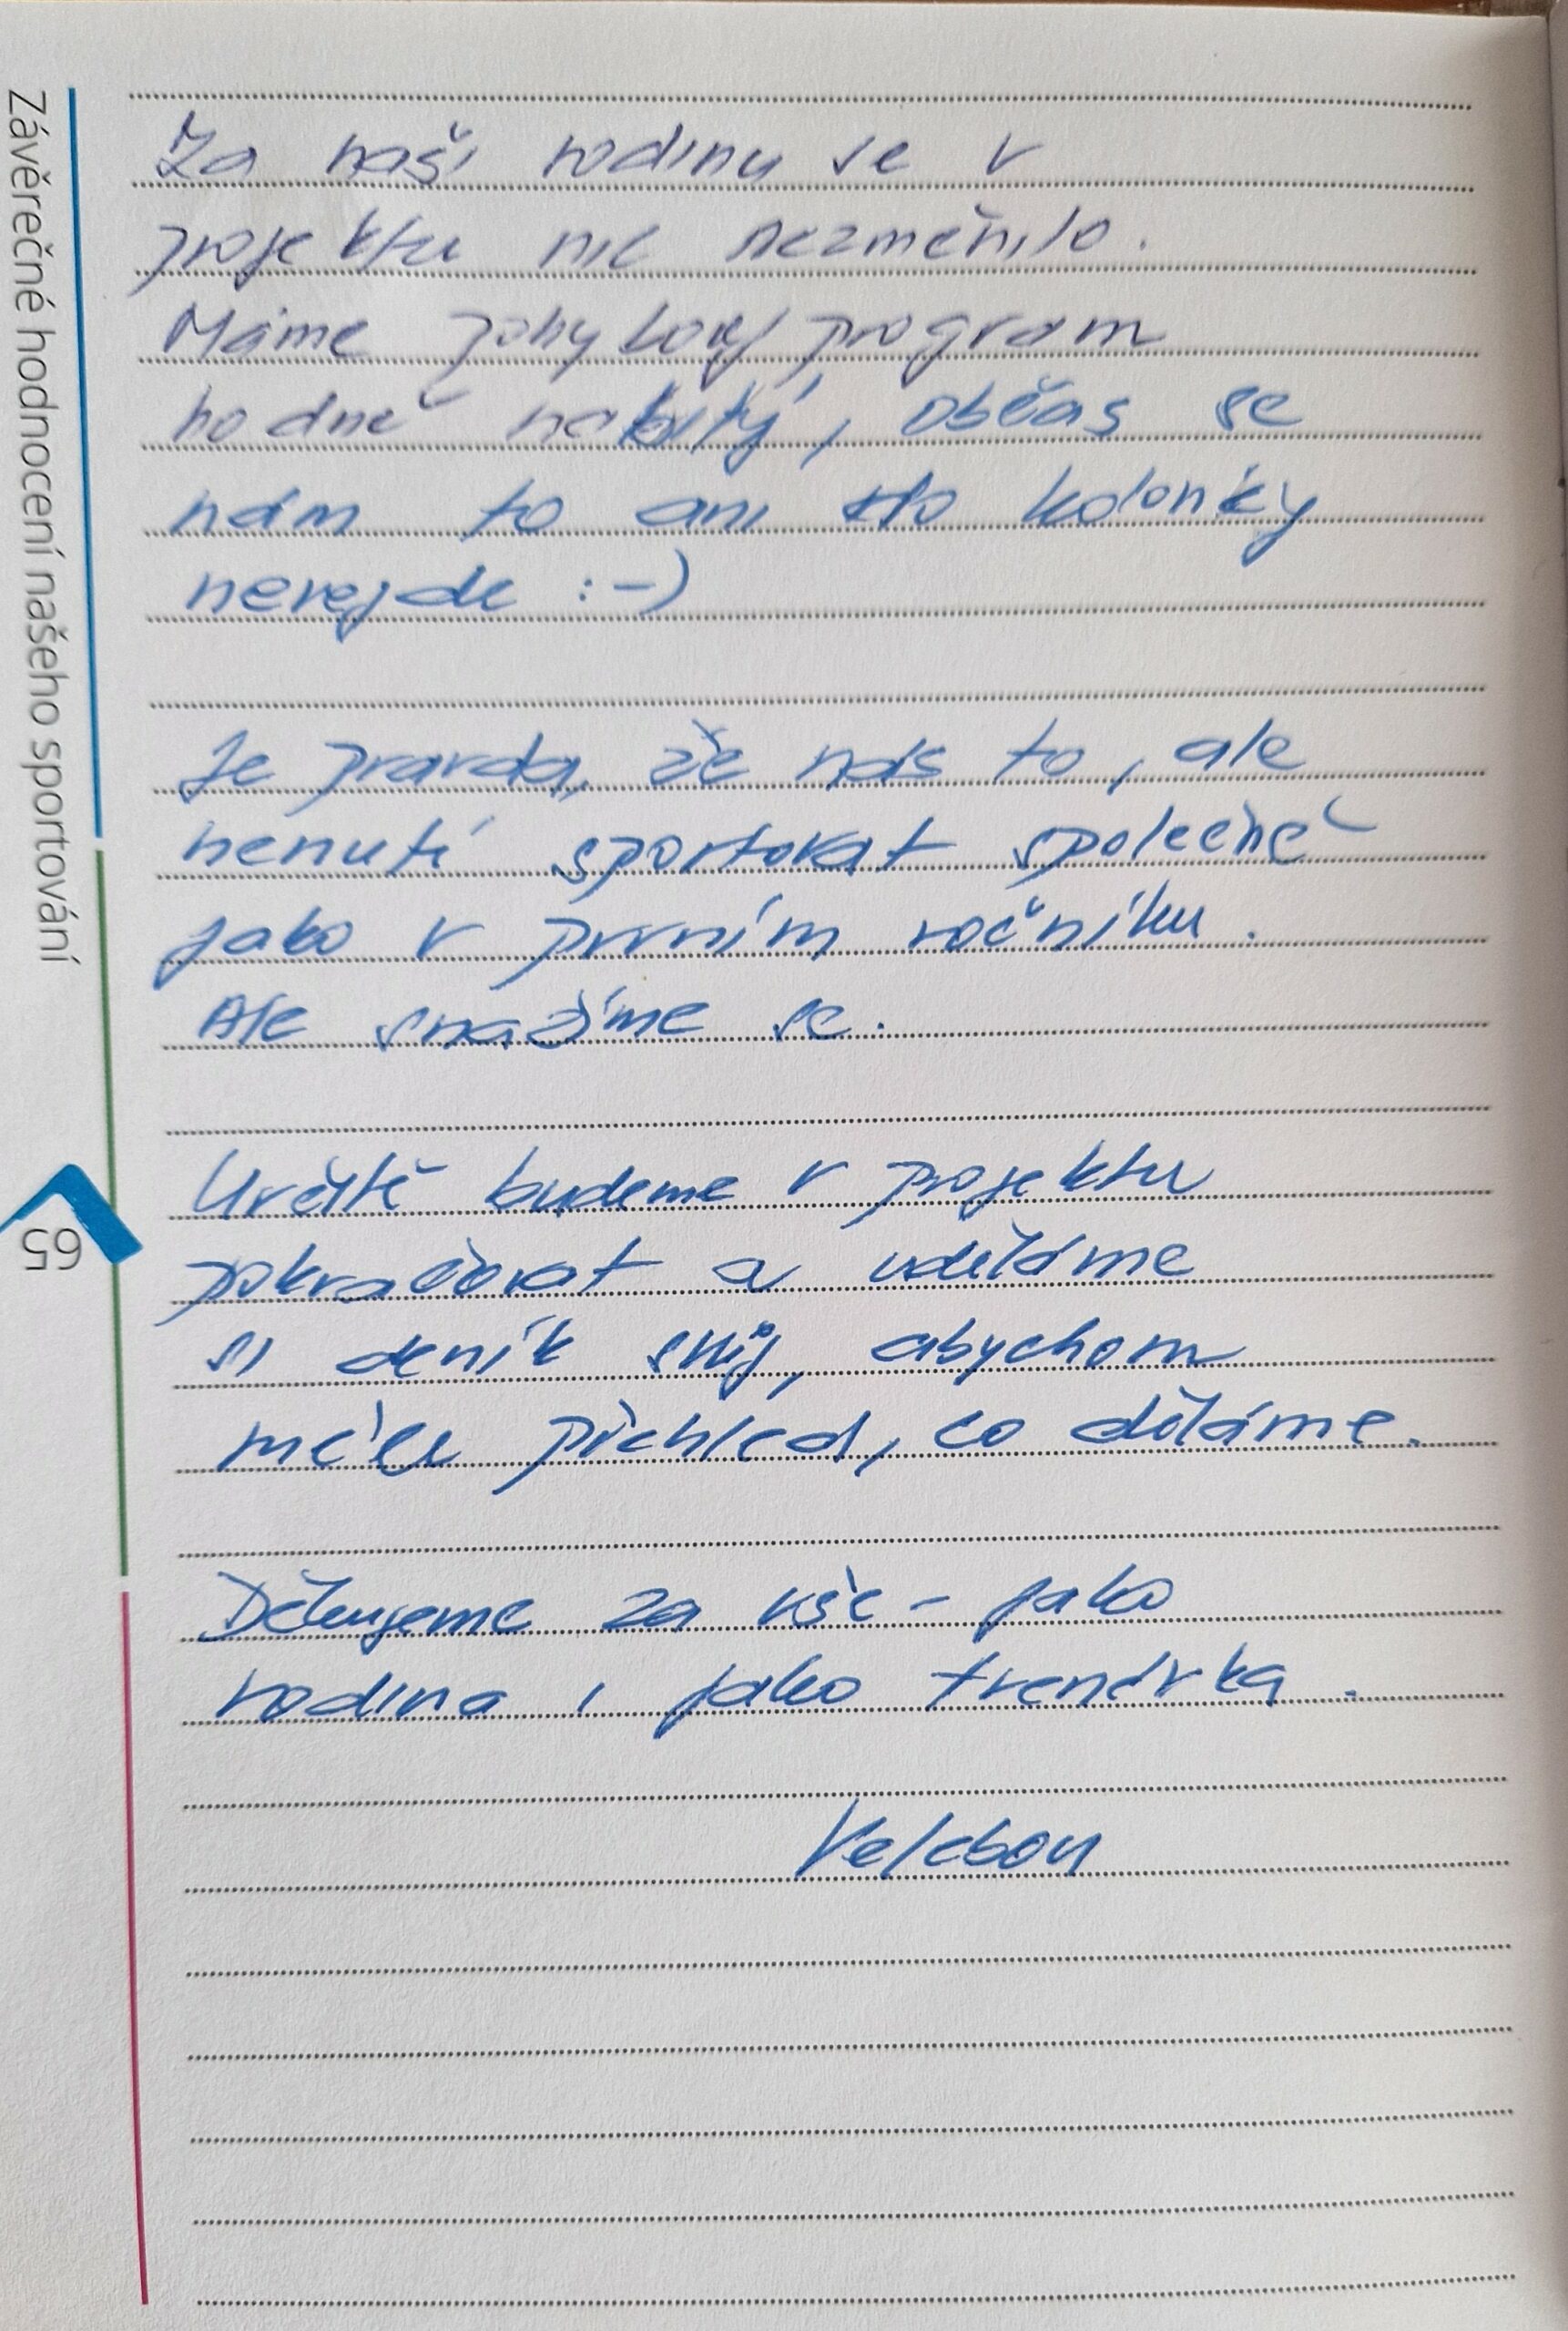 Závěrečné hodnocení našeho sportování
65
Za naši rodinu se v
projektu nic nezměnilo.
Máme pohybový program
hodně nabitý, občas se
nám to ani do kolonky
nevejde :-)
Je pravda, že nás to, ale
nenutí sportovat společně
jako v prvním ročníku.
Ale snažíme se.
Určitě budeme v projektu
pokračovat a uděláme
si deník svůj, abychom
měli přehled, co děláme.
Děkujeme za vše - jako
rodina i jako trenérka.